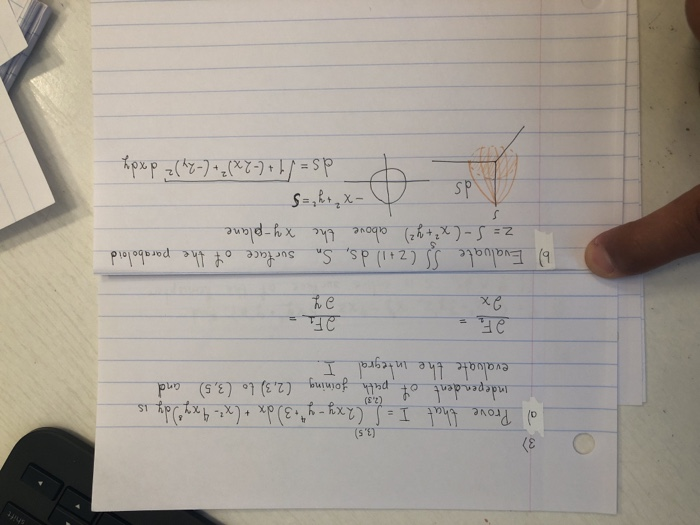 3)
a) Prove that I = ∫ (2,3) (3,5) (2xy - y⁴ + 3) dx + (x² - 4xy³) dy is
independent of path joining (2,3) to (3,5) and
evaluate the integral I.
∂F₂/∂x = ∂F₁/∂y =
b) Evaluate ∬ₛ (z+1) ds, Sn surface of the paraboloid
z = 5 - (x² + y²) above the x-y-plane
5
x² + y² = 5
ds
ds = √1 + (-2x)² + (-2y)² dxdy